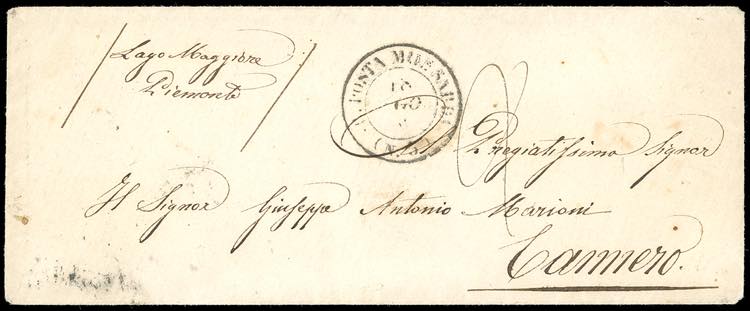 Lago Maggiore
Piemonte
POSTA MIL. SARDA
18
GO
(N. 3)
Pregiatissimo Signor
Il Signor Giuseppe Antonio Marioni
Cannero.